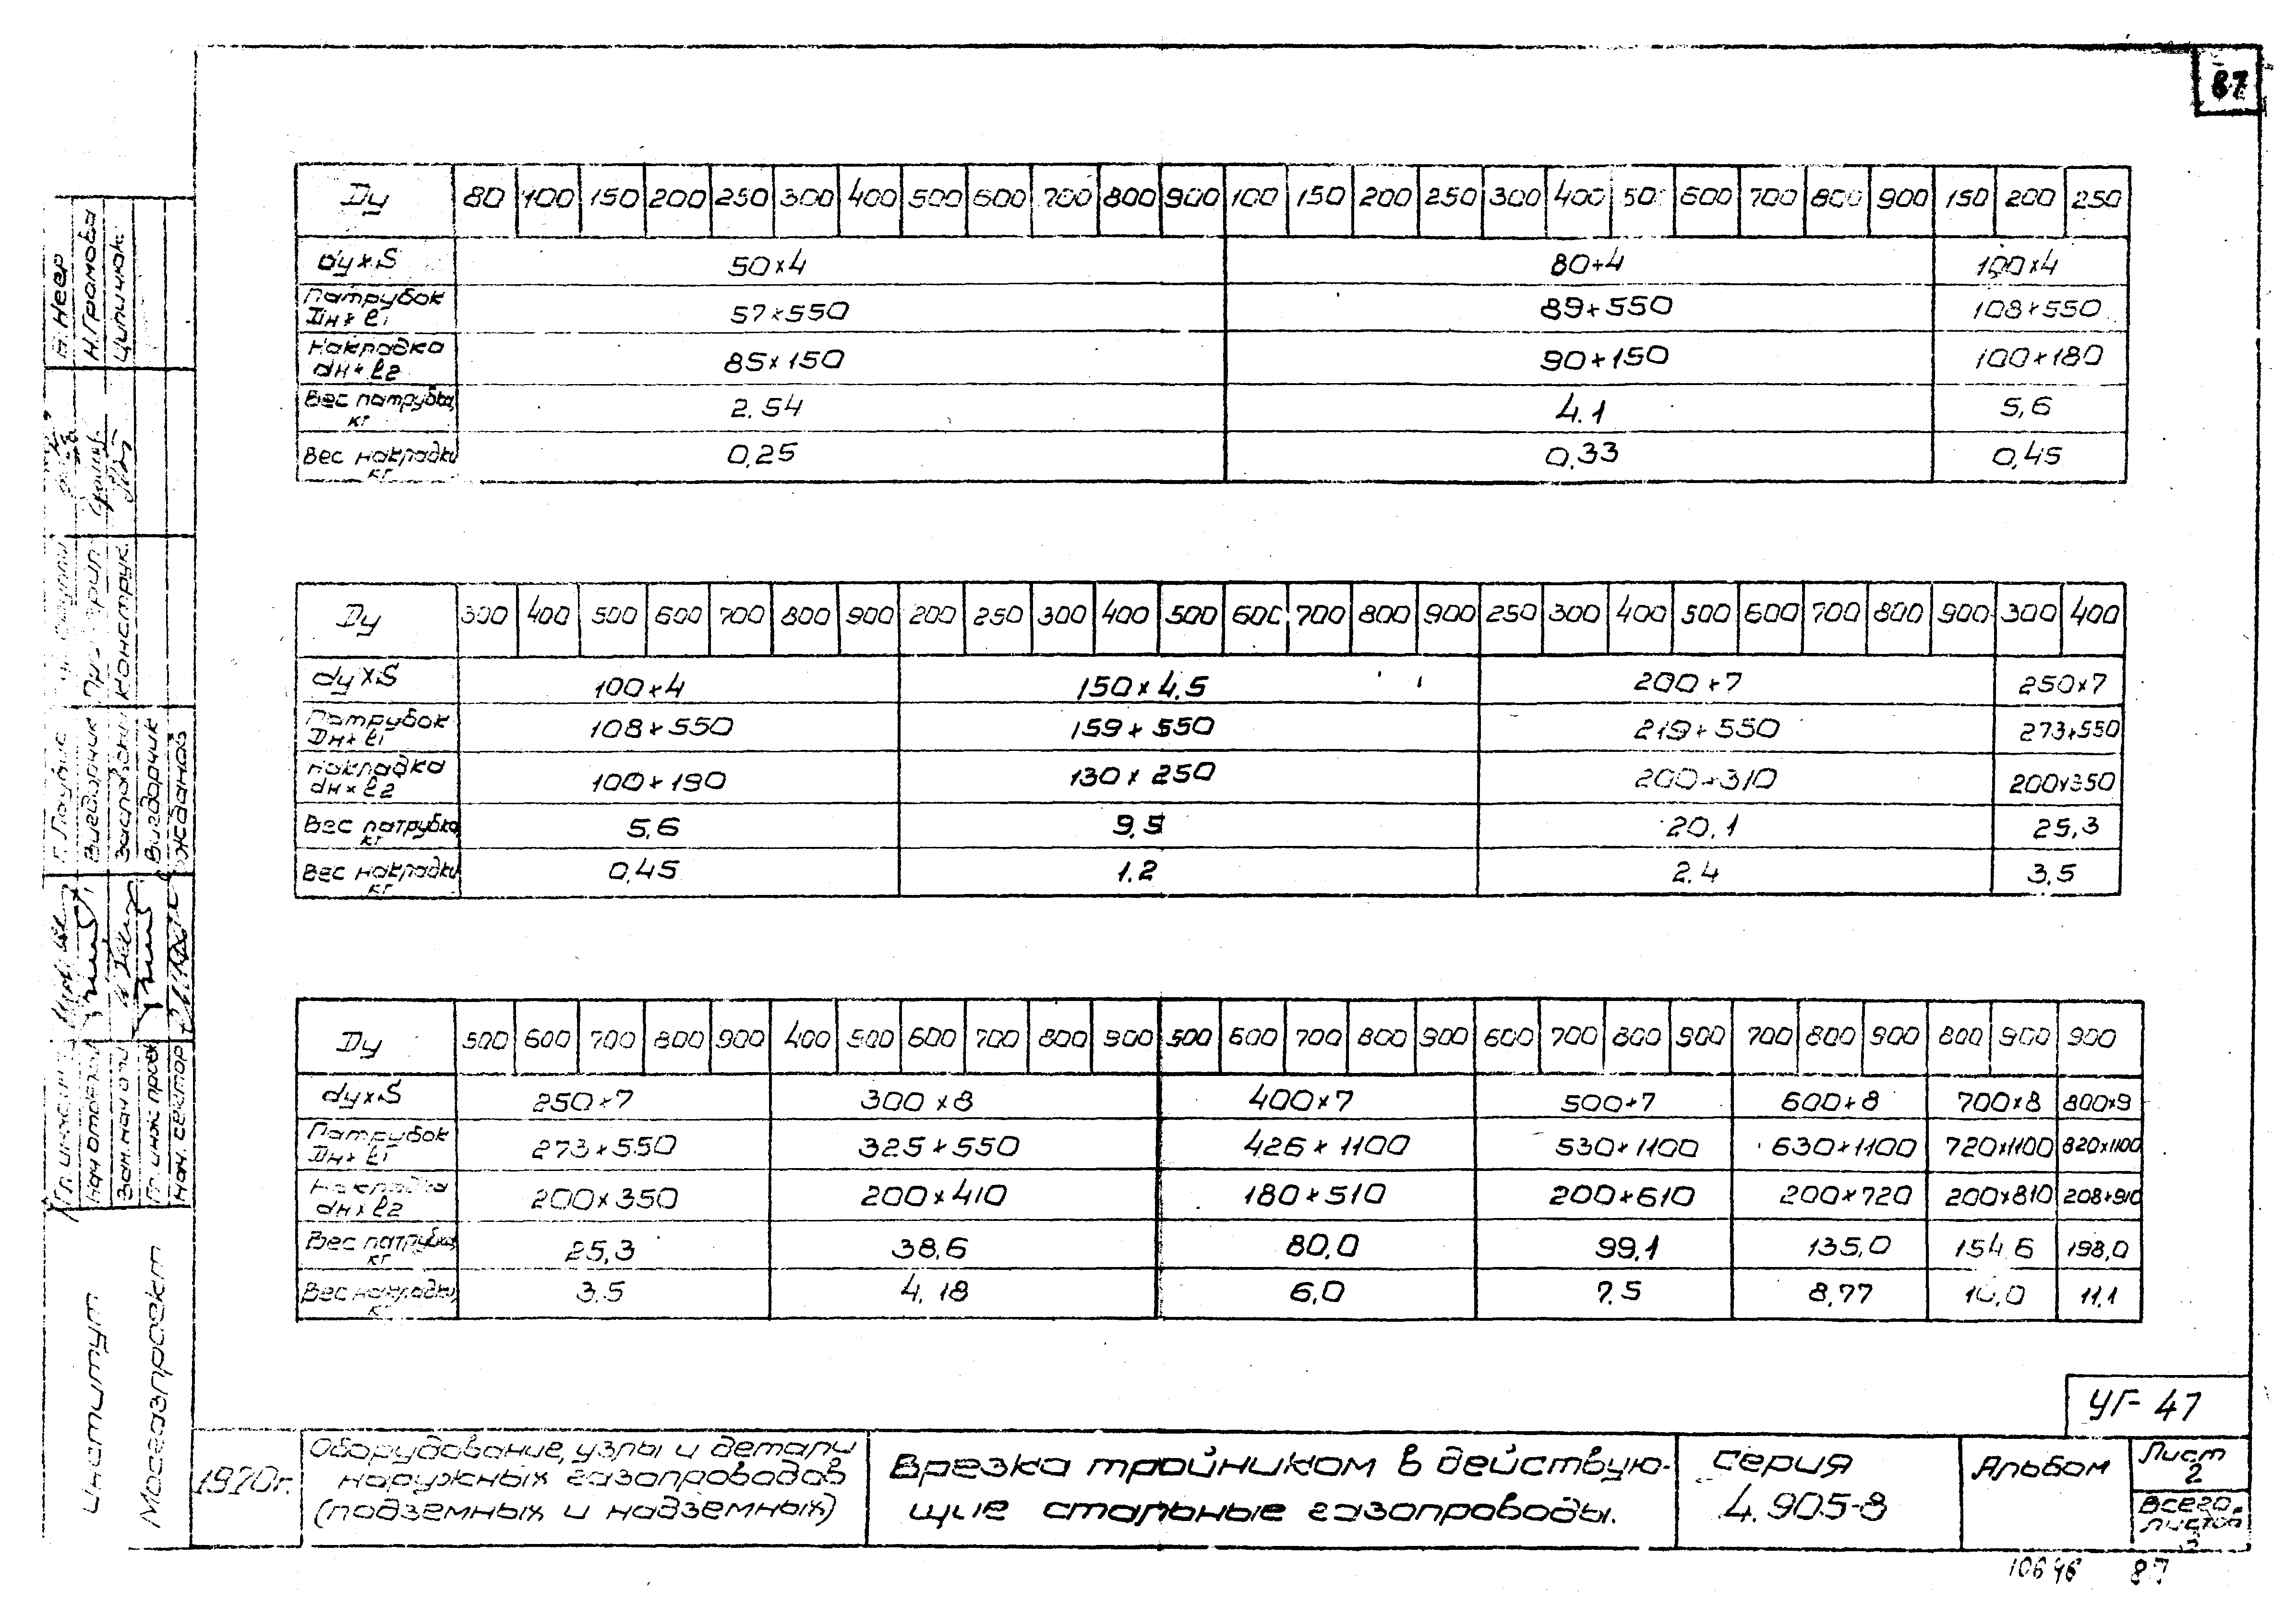 87
Ду 80 100 150 200 250 300 400 500 600 700 800 900 100 150 200 250 300 400 50 600 700 800 900 150 200 250
dу×S 50×4 80×4 100×4
Патрубок
Dн×ℓ1 57×550 89×550 108×550
Накладка
dн×ℓ2 85×150 90×150 100×180
Вес патрубка,
кг 2.54 4.1 5,6
Вес накладки
кг 0,25 0,33 0,45
Ду 300 400 500 600 700 800 900 200 250 300 400 500 600 700 800 900 250 300 400 500 600 700 800 900 300 400
dу×S 100×4 150×4,5 200×7 250×7
Патрубок
Dн×ℓ1 108×550 159×550 219×550 273×550
Накладка
dн×ℓ2 100×190 130×250 200×310 200×350
Вес патрубка
кг 5,6 9,5 20,1 25,3
Вес накладки
кг 0,45 1.2 2.4 3,5
Ду 500 600 700 800 900 400 500 600 700 800 900 500 600 700 800 900 600 700 800 900 700 800 900 800 900 900
dу×S 250×7 300×8 400×7 500×7 600×8 700×8 800×9
Патрубок
Dн×ℓ1 273×550 325×550 426×1100 530×1100 630×1100 720×1100 820×1100
Накладка
dн×ℓ2 200×350 200×410 180×510 200×610 200×720 200×810 208×910
Вес патрубка,
кг 25,3 38,6 80,0 99,1 135,0 154,6 198,0
Вес накладки,
кг 3.5 4,18 6,0 7,5 8,77 10,0 11,1
УГ-47
1970г.
Оборудование, узлы и детали
наружных газопроводов
(подземных и надземных)
Врезка тройником в действую-
щие стальные газопроводы.
серия
4.905-8
Альбом
Лист
2
Всего
листов
3
10646 87
Институт
Мосгазпроект
Нач. отдела
Зам. нач. отд
Гл. инж. проек
Нач. сектор
Вигдорчик
Вигдорчик
Жданов
конструк.
Неер
Н.Громова
Ципичюк